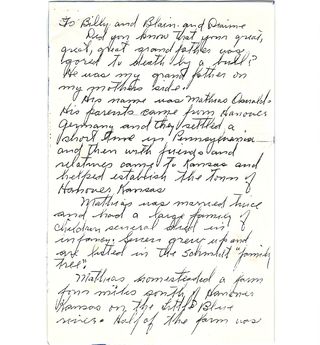 To Billy and Blain and Duaine
Did you know that your great,
great, great grand father was
gored to death by a bull?
He was my grand father on
my mothers side.
His name was Mathias Oswald.
His parents came from Hanover
Germany and they settled a
short time in Pennsylvania
and then with friends and
relatives came to Kansas and
helped establish the town of
Hanover, Kansas
Mathias was married twice
and had a large family of
children several died in
infancy. Seven grew up and
are listed in the Schmidt "family
tree".
Mathias homesteaded a farm
four miles south of Hanover
Kansas on the Little Blue
river. Half of the farm was